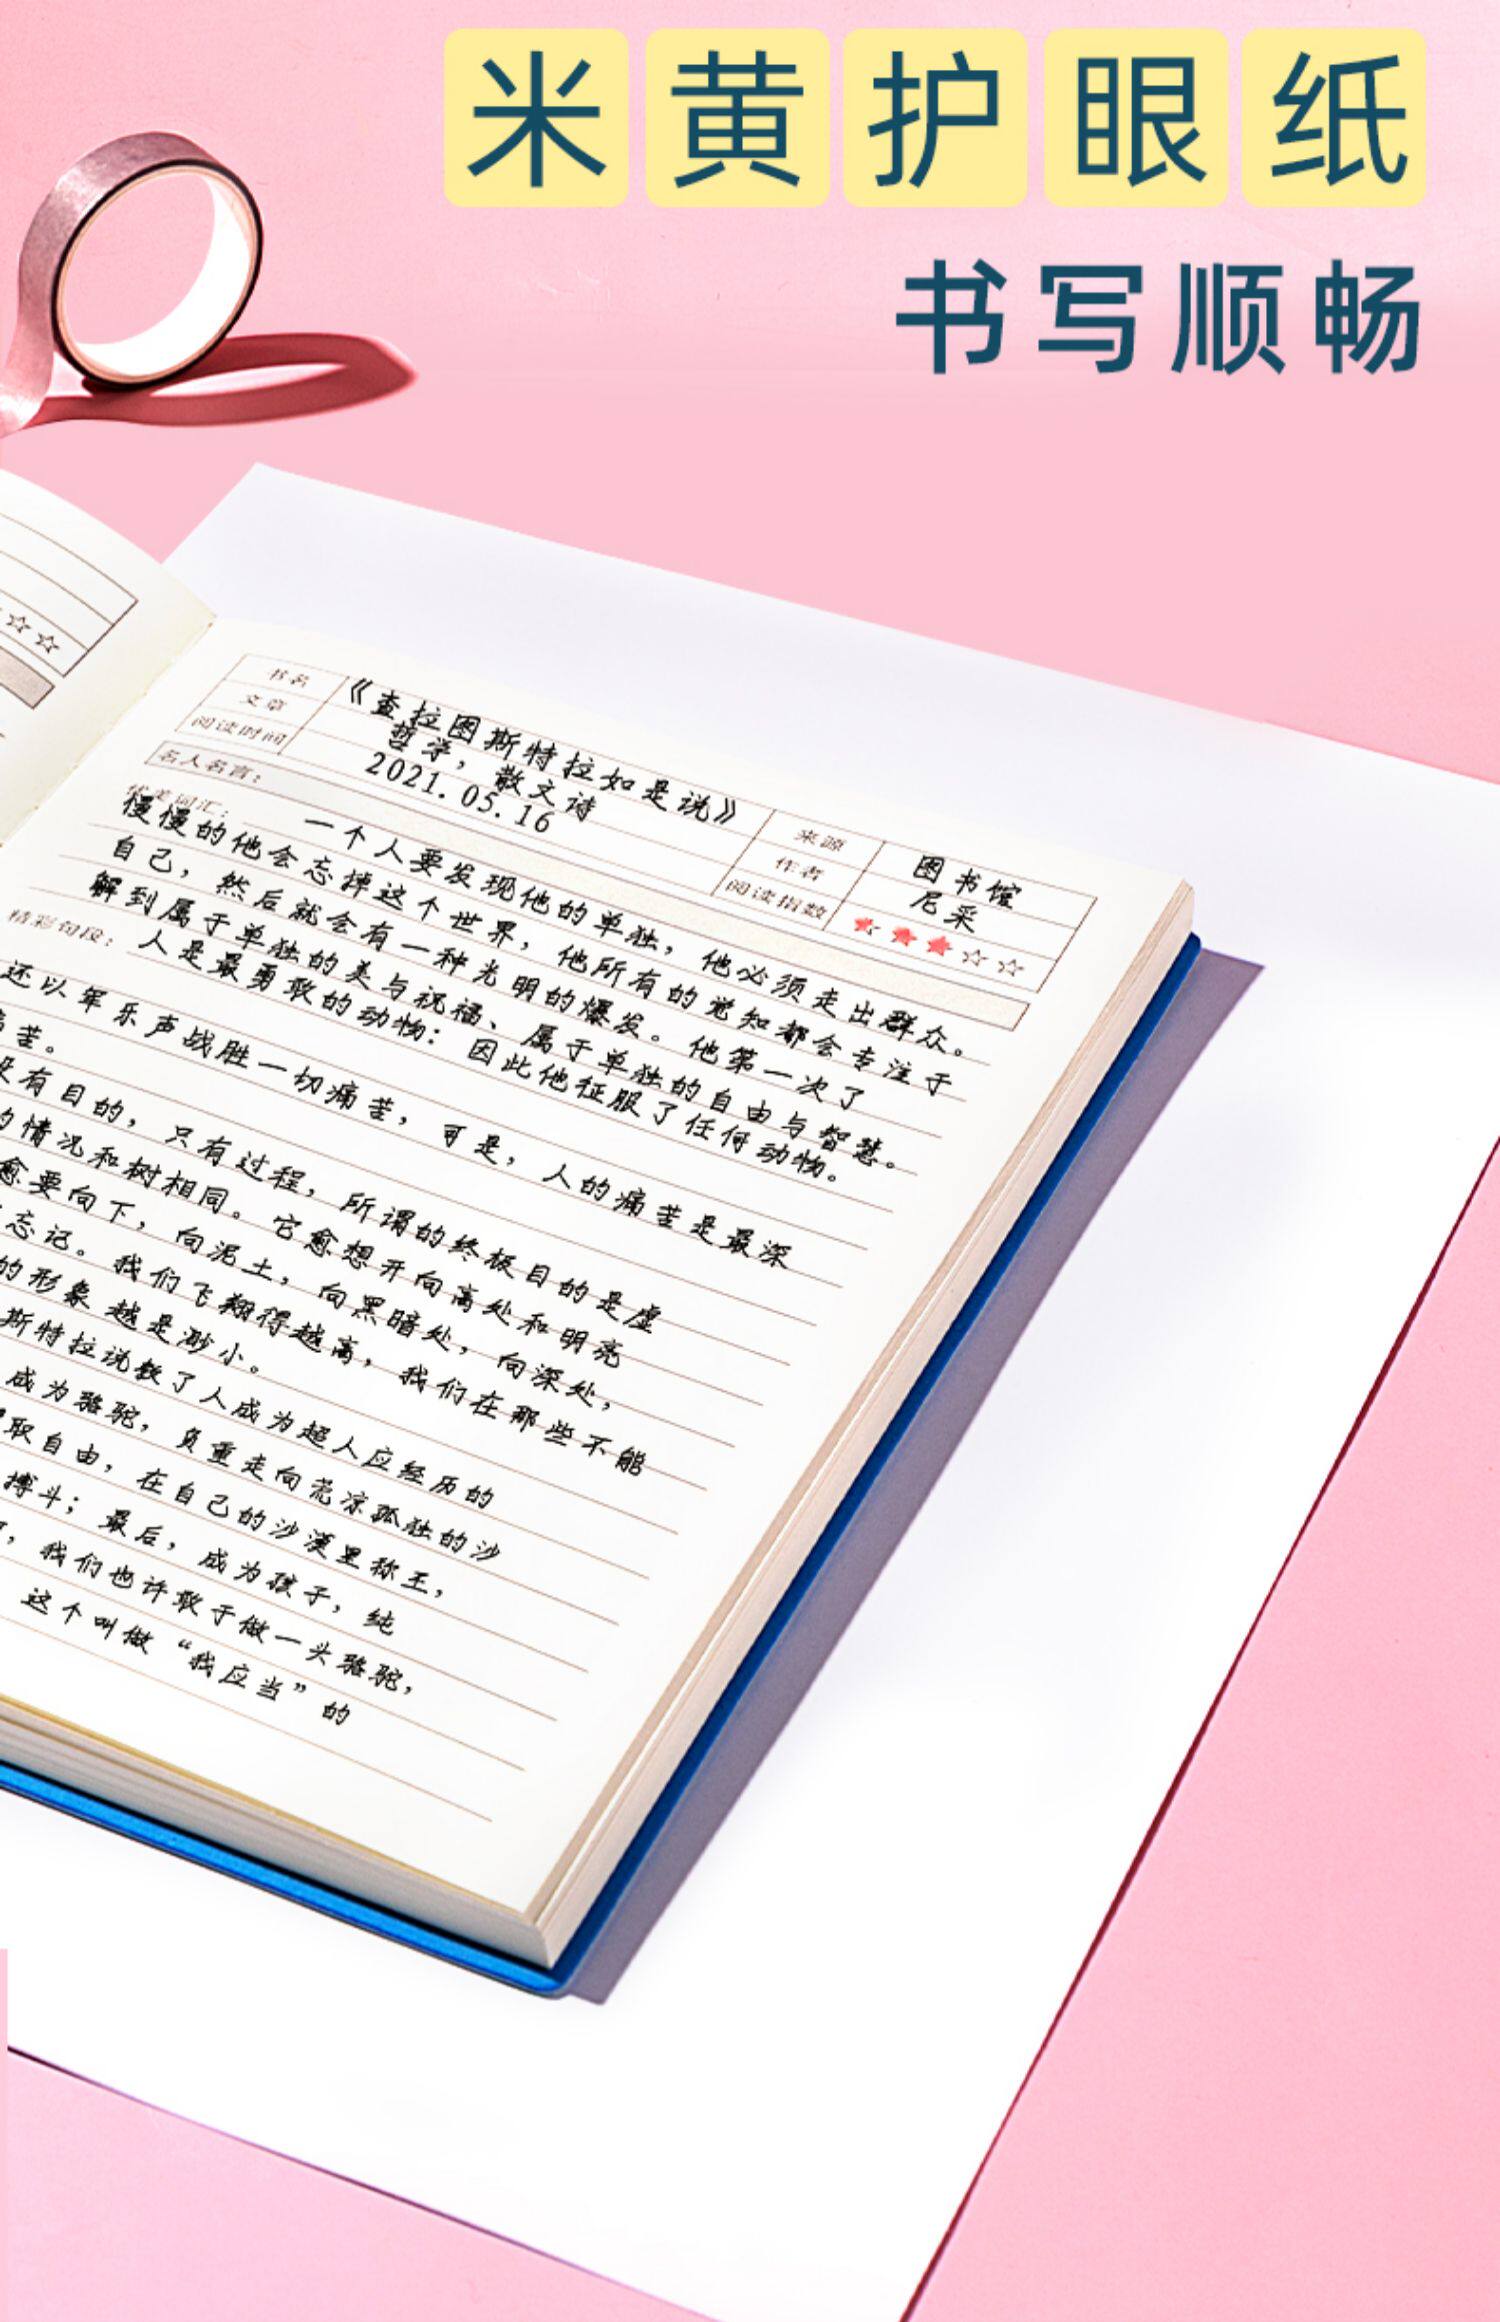 米黄护眼纸
书写顺畅
书名 《查拉图斯特拉如是说》 来源 图书馆
文章 哲学，散文诗 作者 尼采
阅读时间 2021.05.16 阅读指数
名人名言：
优美词汇： 一个人要发现他的单独，他必须走出群众。
慢慢的他会忘掉这个世界，他所有的觉知都会专注于
自己，然后就会有一种光明的爆发。他第一次了
解到属于单独的美与祝福、属于单独的自由与智慧。
精彩句段： 人是最勇敢的动物：因此他征服了任何动物。
还以军乐声战胜一切痛苦，可是，人的痛苦是最深
苦。
没有目的，只有过程，所谓的终极目的是虚
的情况和树相同。它愈想开向高处和明亮
愈要向下，向泥土，向黑暗处，向深处，
忘记。我们飞翔得越高，我们在那些不能
的形象越是渺小。
斯特拉说教了人成为超人应经历的
成为骆驼，负重走向荒凉孤独的沙
取自由，在自己的沙漠里称王，
搏斗；最后，成为孩子，纯
，我们也许敢于做一头骆驼，
这个叫做“我应当”的